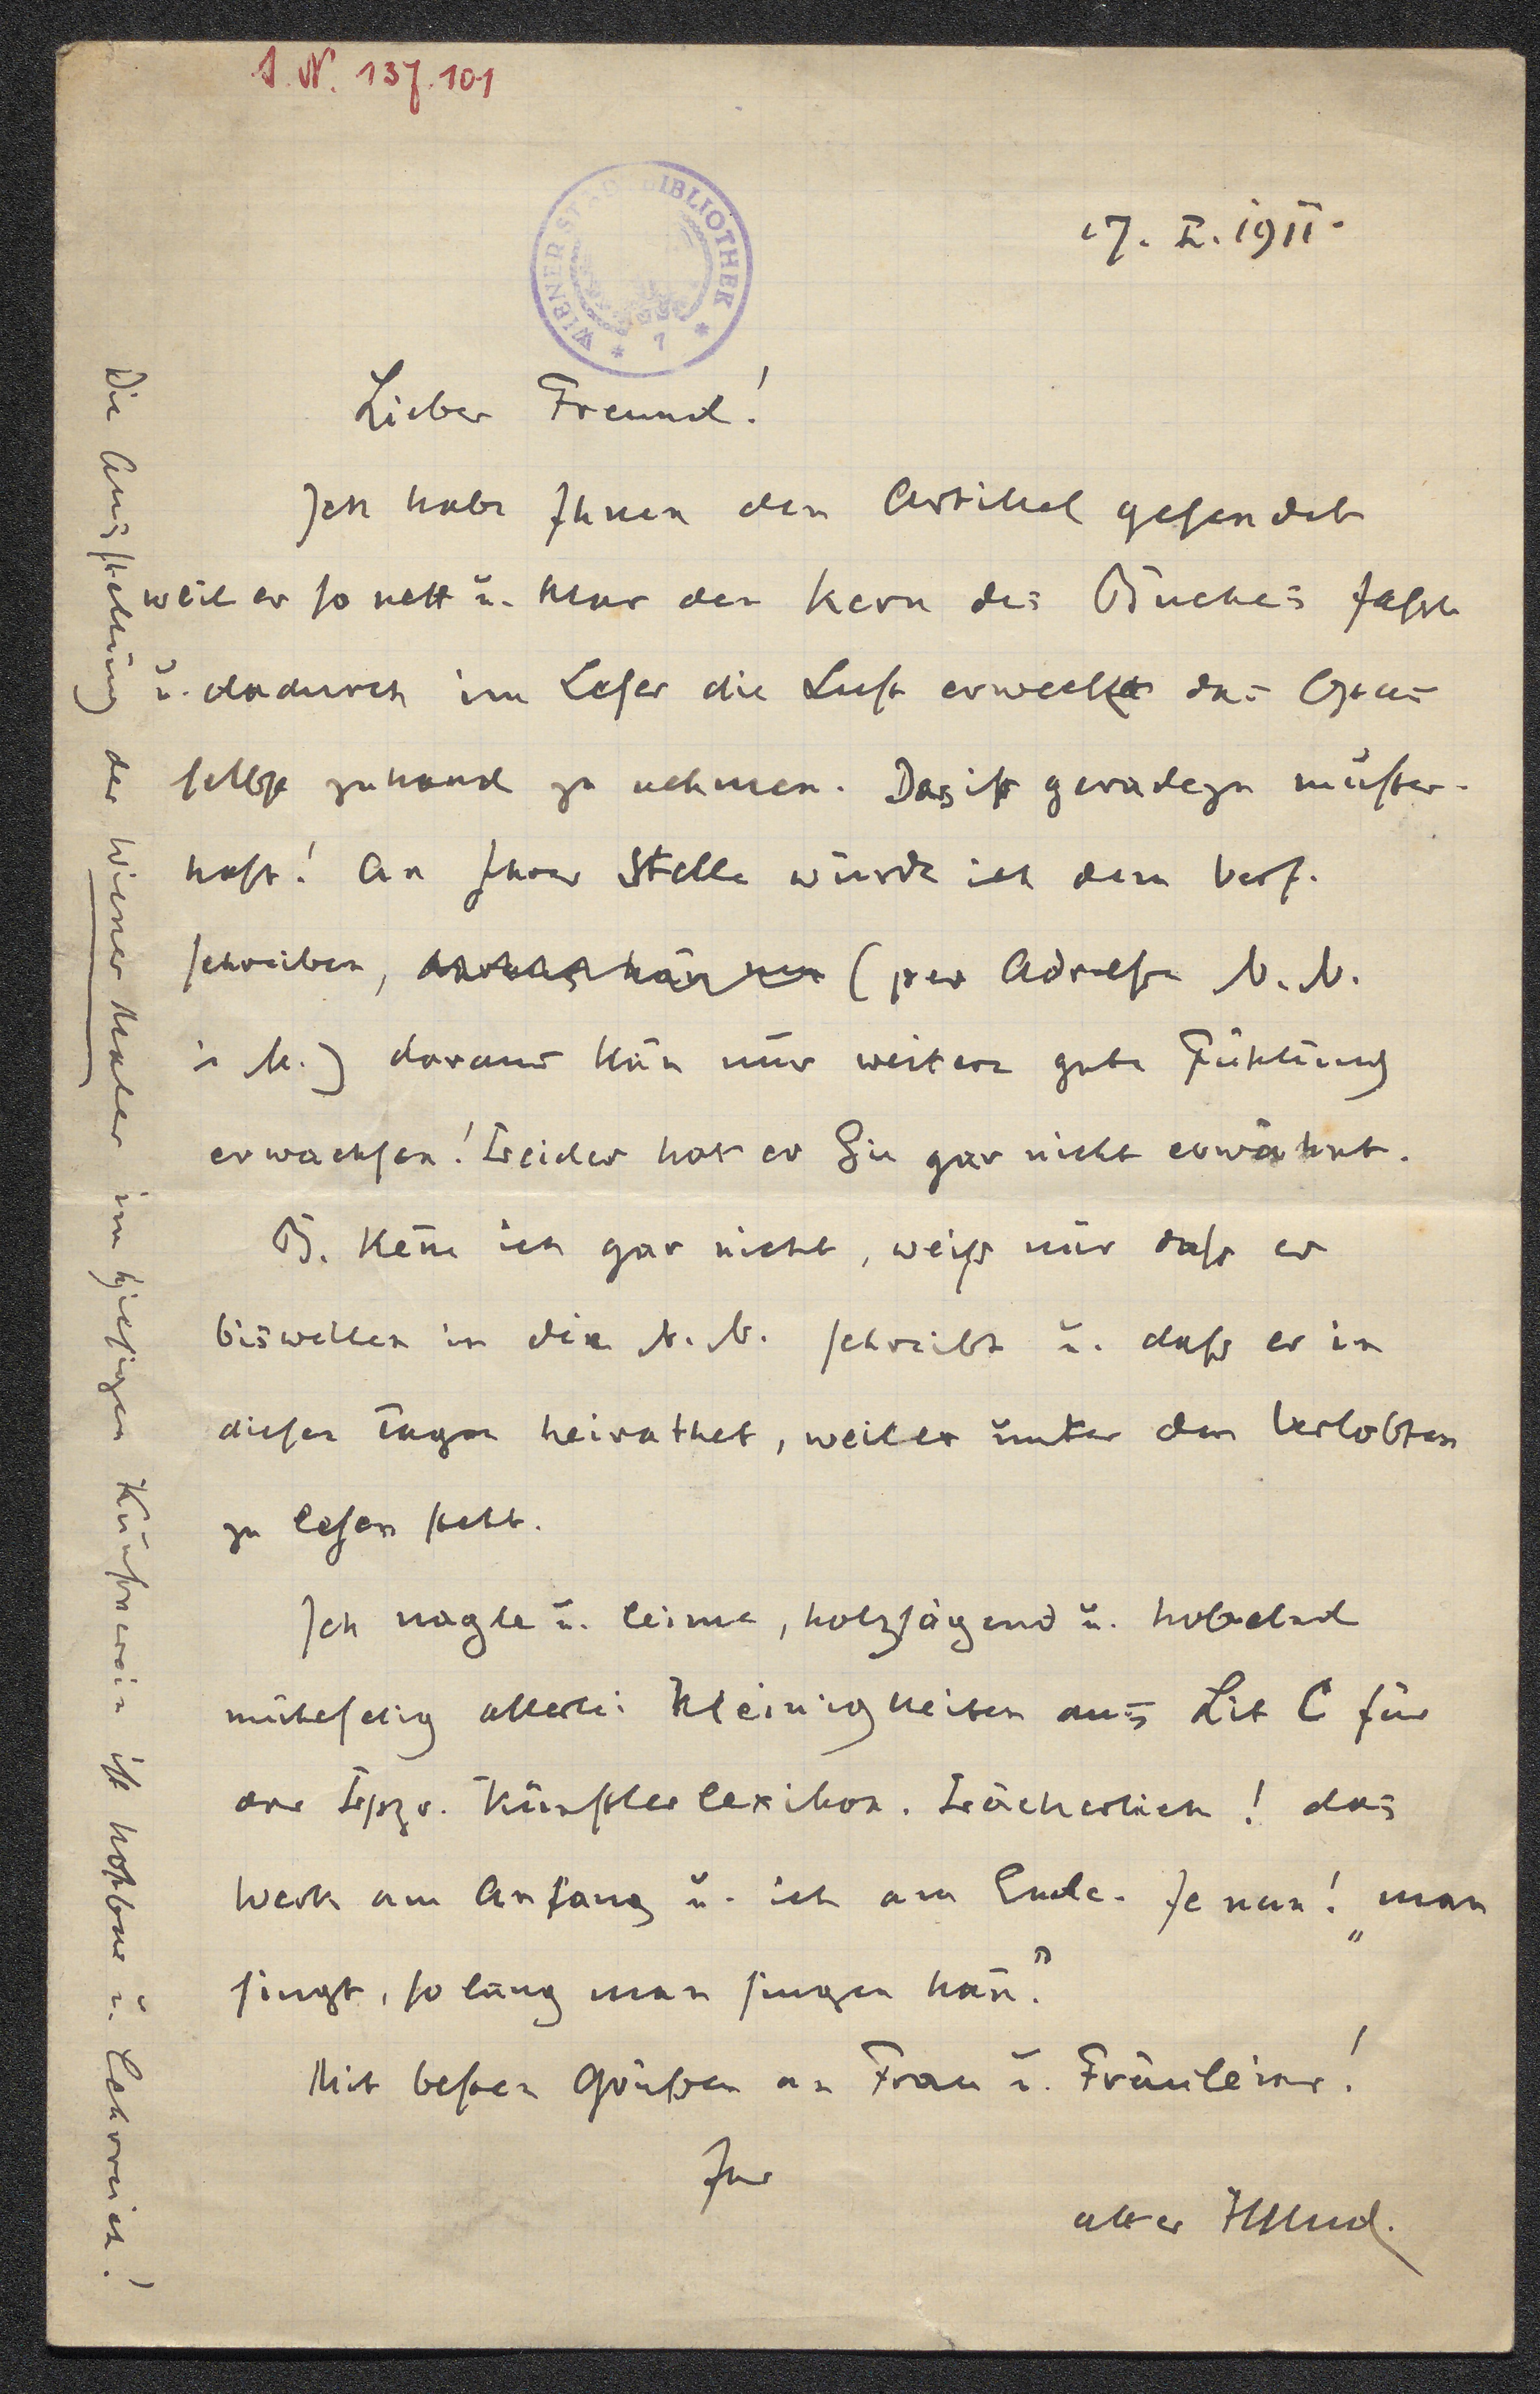 I. N. 137.101
WIENER STADTBIBLIOTHEK * 7 *
17. X. 1911.
Lieber Freund!
Ich habe Ihnen den Artikel gesendet
weil er so nett u. klar den Kern des Buches fasst
u. dadurch im Leser die Lust erweckt das Opus
selbst zuhand zu nehmen. Das ist geradezu muster-
haft! An Ihrer Stelle würde ich dem Verf.
schreiben, (per Adresse N. N.
i. M.) daraus kañ nur weitere gute Fühlung
erwachsen! Leider hat er Sie gar nicht erwähnt.
B. keñe ich gar nicht, weiß nur daß er
bisweilen in den N. N. schreibt u. daß er in
diesen Tagen heirathet, weil er unter den Verlobten
zu lesen steht.
Ich nagle u. leime, holzsägend u. hobelnd
mühselig allerlei Kleinigkeiten aus Lit C für
das Lpzr. Künstlerlexikon. Lächerlich! das
Werk am Anfang u. ich am Ende. Je nun! „man
singt, so lang man singen kañ.“
Mit besten Grüßen an Frau u. Fräulein!
Ihr
alter HHlld.
Die Ausstellung der Wiener Maler im hiesigen Kunstverein ist hochbne u. lehrreich!